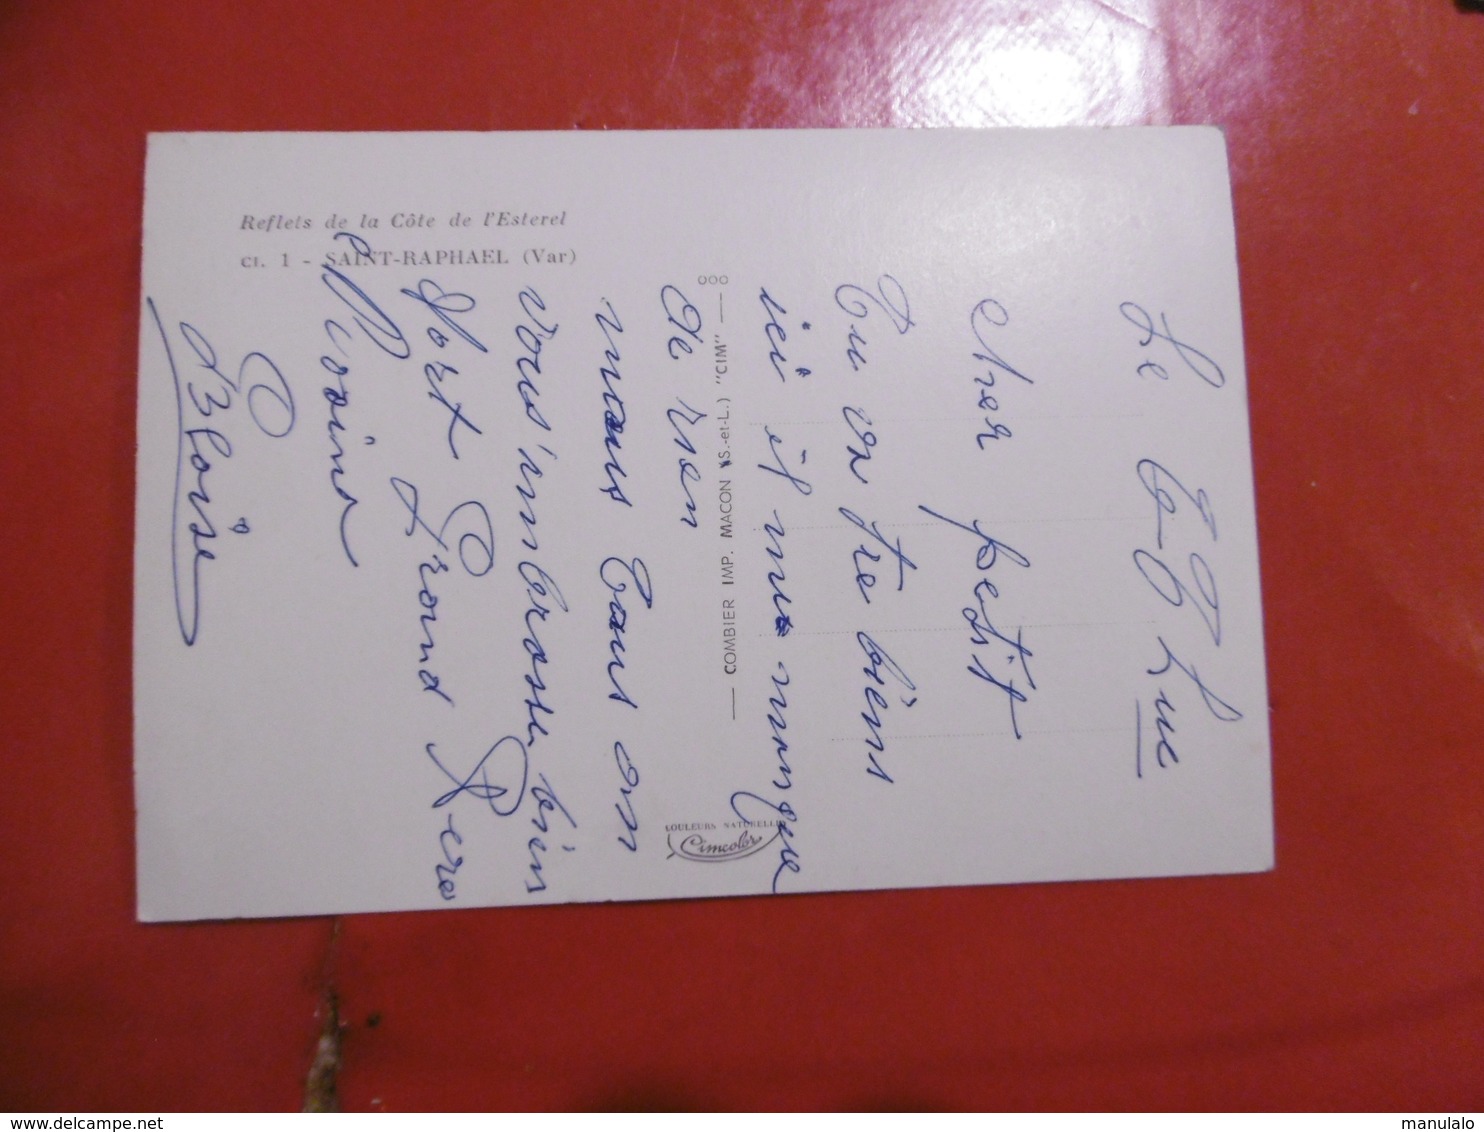 Reflets de la Côte de l'Esterel
CI. 1 - SAINT-RAPHAEL (Var)
COMBIER IMP. MACON (S.-et-L.) "CIM"
COULEURS NATURELLES
Cimcolor
Le Luc
cher petit
Tu va tre biens
ici il me manque
de rien
nous tous on
vous' imbrasse bien
fort Grand Pere
Blaise
www.delcampe.net
manulalo